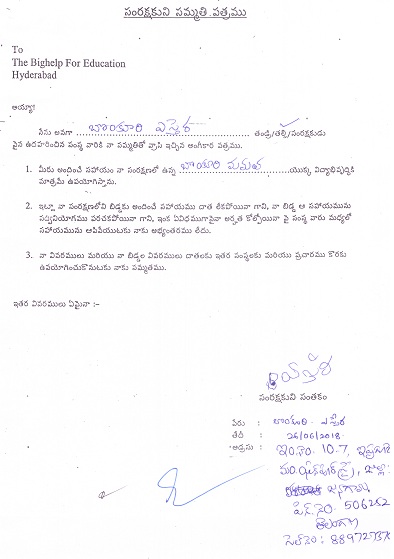 సంరక్షకుని సమ్మతి పత్రము
To
The Bighelp For Education
Hyderabad
అయ్యా!
నేను అనగా బొంకూరి ఎస్తేర తండ్రి/తల్లి/సంరక్షకుడు
పైన ఉదహరించిన సంస్థ వారికి నా సమ్మతితో వ్రాసి ఇచ్చిన అంగీకార పత్రము.
1. మీరు అందించే సహాయం నా సంరక్షణలో ఉన్న బొంకూరి మమత యొక్క విద్యాభివృద్ధికి
మాత్రమే ఉపయోగిస్తాను.
2. ఇట్లా నా సంరక్షణలోని బిడ్డకు అందించే సహాయము దాత లేకపోయినా గాని, నా బిడ్డ ఆ సహాయమును
సద్వినియోగము పరచకపోయినా గాని, ఇంక ఏవిధముగానైనా అర్హత కోల్పోయినా పై సంస్థ వారు మధ్యలో
సహాయమును ఆపివేయుటకు నాకు అభ్యంతరము లేదు.
3. నా వివరములు మరియు నా బిడ్డల వివరములు దాతలకు ఇతర సంస్థలకు మరియు ప్రచారము కొరకు
ఉపయోగించుకొనుటకు నాకు సమ్మతము.
ఇతర వివరములు ఏమైనా :-
సంరక్షకుని సంతకం
పేరు : బొంకూరి ఎస్తేర
తేదీ : 26/06/2018
అడ్రసు : ఇం.నం. 10-7,
జనగాం
పిన్.నం 506252
తెలంగాణ
సెల్ నం: 889727378